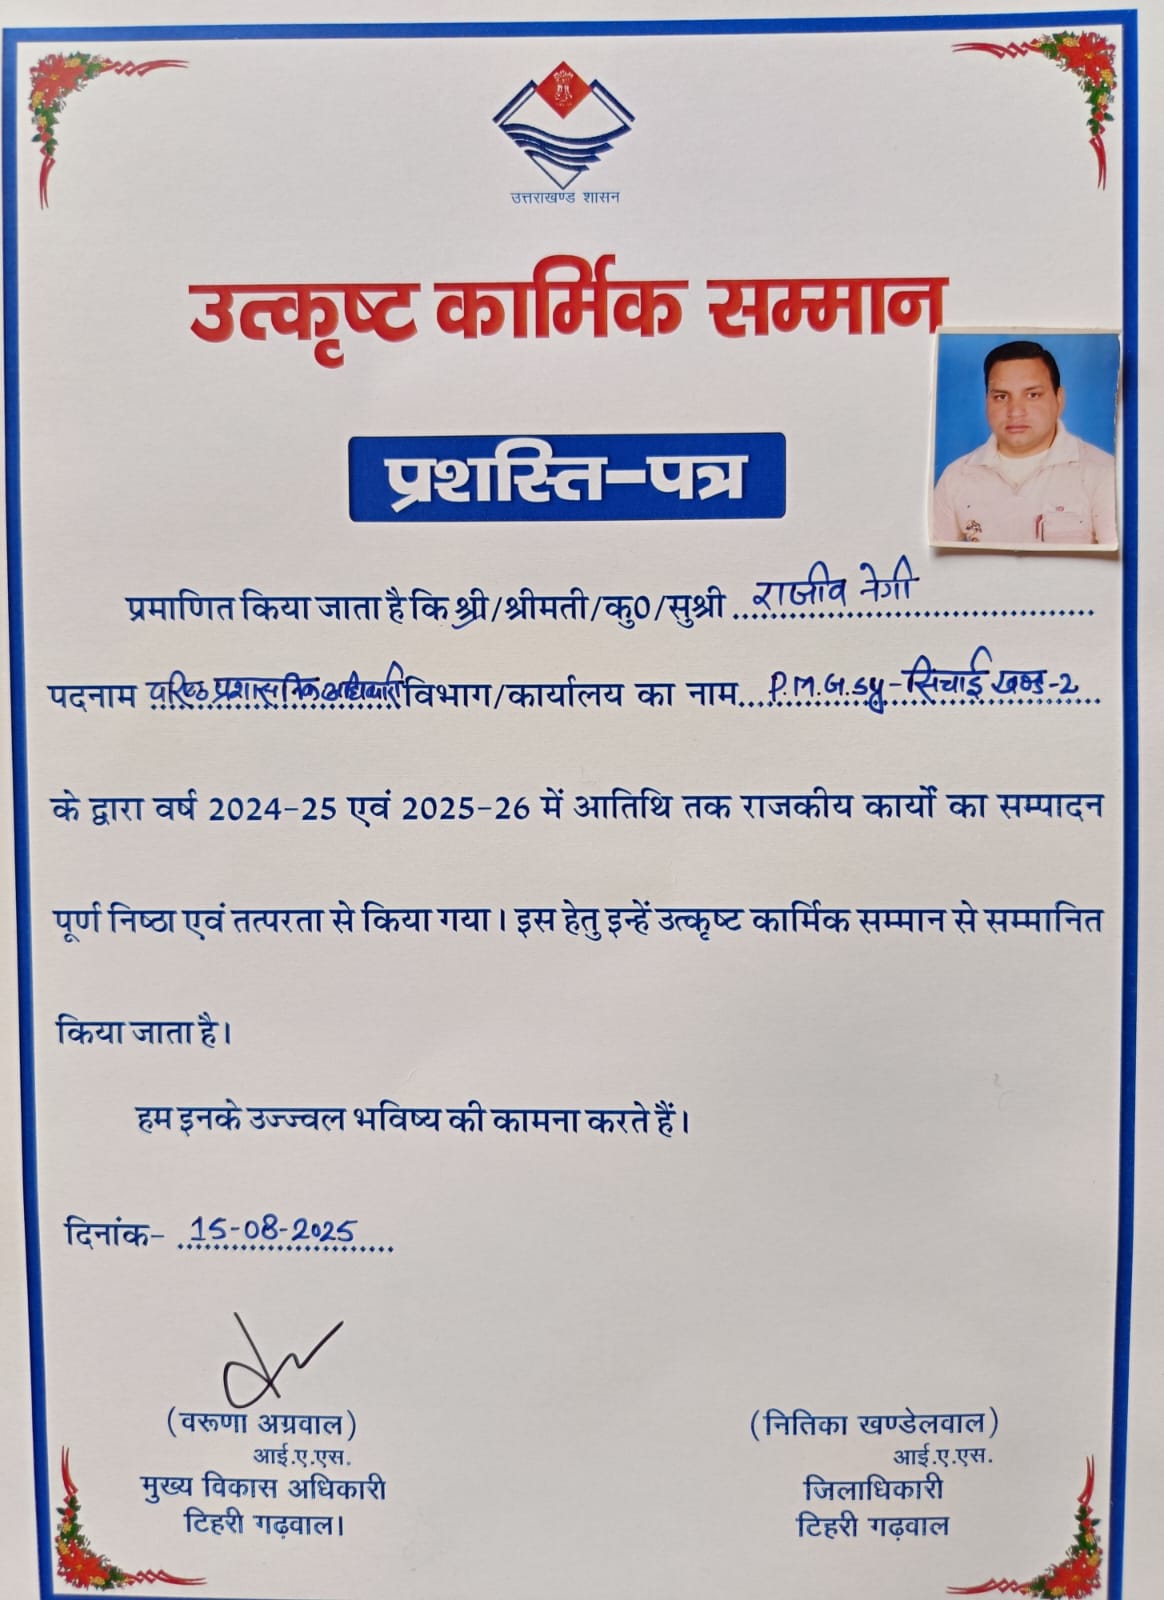 उत्तराखण्ड शासन
उत्कृष्ट कार्मिक सम्मान
प्रशस्ति-पत्र
प्रमाणित किया जाता है कि श्री/श्रीमती/कु0/सुश्री राजीव नेगी
पदनाम वरिष्ठ प्रशासनिक अधिकारी विभाग/कार्यालय का नाम P.M.G.SY-सिंचाई खण्ड-2
के द्वारा वर्ष 2024-25 एवं 2025-26 में आतिथि तक राजकीय कार्यों का सम्पादन
पूर्ण निष्ठा एवं तत्परता से किया गया। इस हेतु इन्हें उत्कृष्ट कार्मिक सम्मान से सम्मानित
किया जाता है।
हम इनके उज्ज्वल भविष्य की कामना करते हैं।
दिनांक- 15-08-2025
(वरूणा अग्रवाल)
आई.ए.एस.
मुख्य विकास अधिकारी
टिहरी गढ़वाल।
(नितिका खण्डेलवाल)
आई.ए.एस.
जिलाधिकारी
टिहरी गढ़वाल